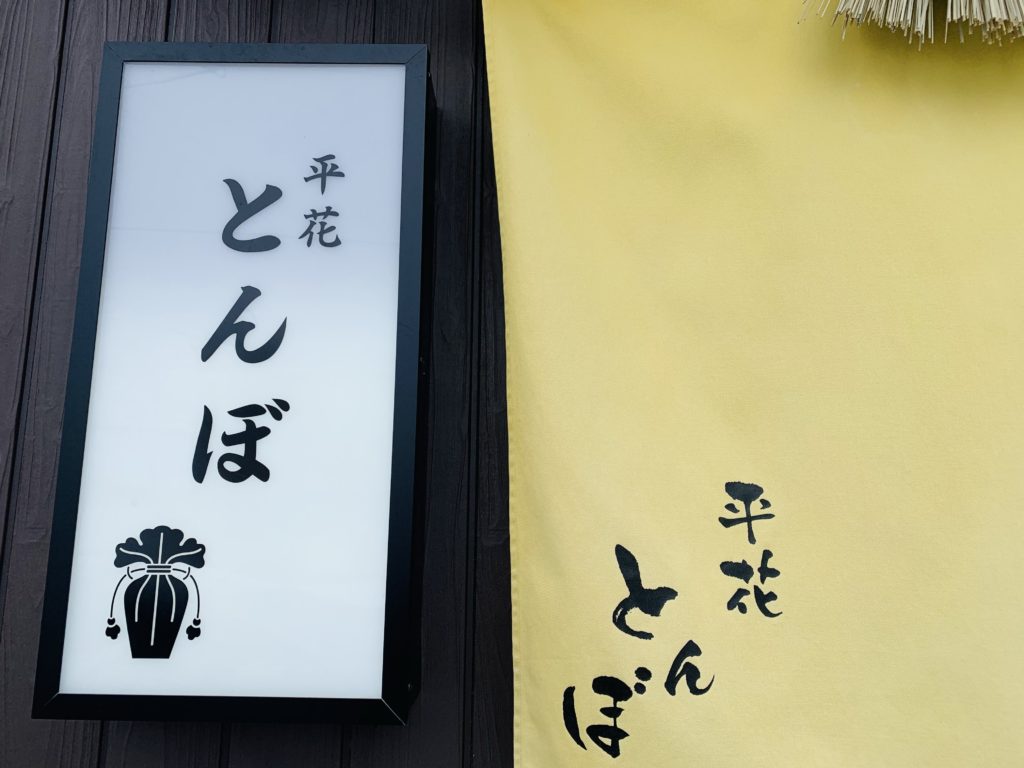 平花
とんぼ
平花
とんぼ